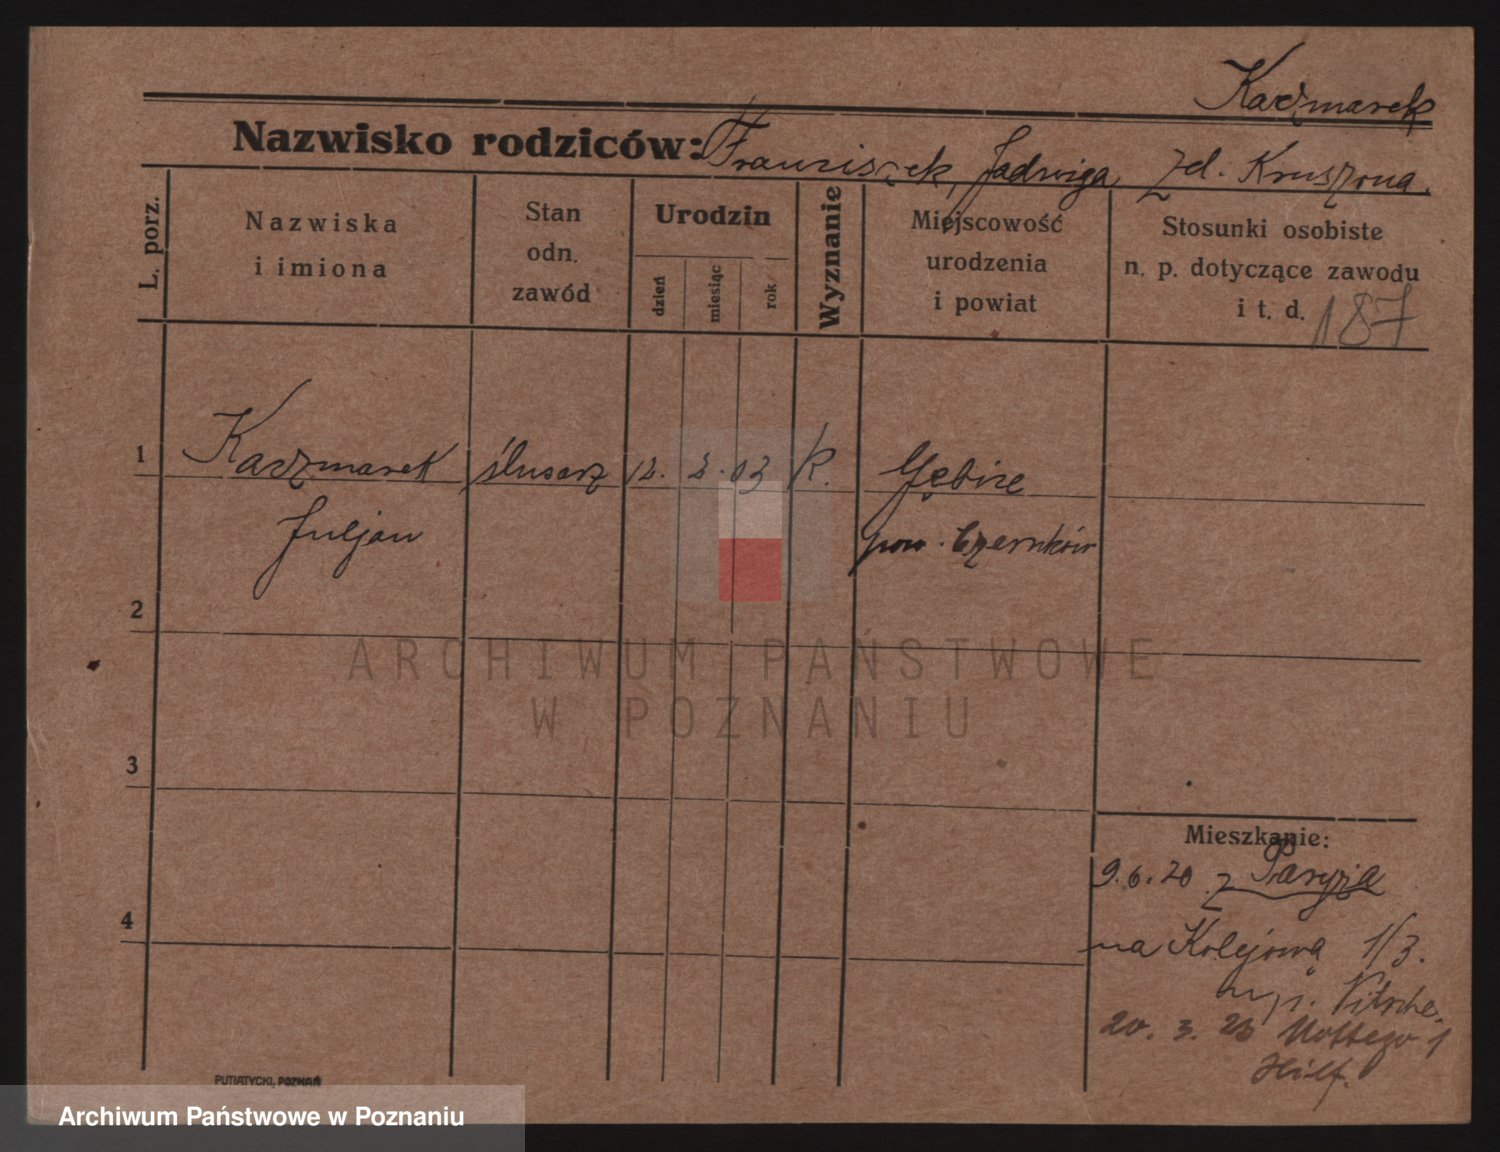 Kaczmarek
Nazwisko rodziców: Franciszek, Jadwiga zd. Kruszona.
L. porz.
Nazwiska
i imiona
Stan
odn.
zawód
Urodzin
dzień
miesiąc
rok
Wyznanie
Miejscowość
urodzenia
i powiat
Stosunki osobiste
n. p. dotyczące zawodu
i t. d. 187
1 Kaczmarek ślusarz 12. 2. 03 k. Gębice
Juljan pow. Czarnków
2
ARCHIWUM PAŃSTWOWE
W POZNANIU
3
Mieszkanie:
9.6.20 z Paryża
4
na Kolejową 1/3.
Nitsche.
20. 3. 23 1
Hilf.
PUTIATYCKI, POZNAŃ
Archiwum Państwowe w Poznaniu